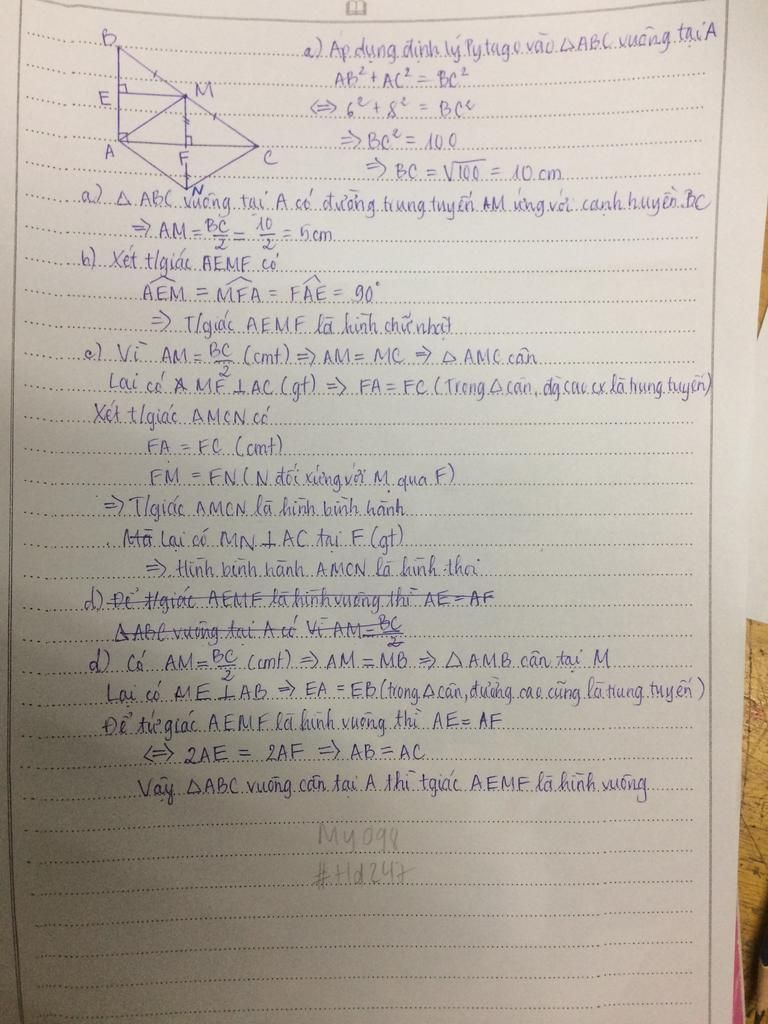 B
E
M
A
F
C
N
a) Áp dụng định lý Pytago vào △ABC vuông tại A
AB² + AC² = BC²
<=> 6² + 8² = BC²
=> BC² = 100
=> BC = √100 = 10 cm
a) △ ABC vuông tại A có đường trung tuyến AM ứng với cạnh huyền BC
=> AM = BC/2 = 10/2 = 5cm
b) Xét t/giác AEMF có
AEM = MFA = FAE = 90°
=> T/giác AEMF là hình chữ nhật
c) Vì AM = BC/2 (cmt) => AM = MC => △ AMC cân
Lại có MF ⊥ AC (gt) => FA = FC (Trong △ cân, đg cao cx là trung tuyến)
Xét t/giác AMCN có
FA = FC (cmt)
FM = FN (N đối xứng với M qua F)
=> T/giác AMCN là hình bình hành
Mà lại có MN ⊥ AC tại F (gt)
=> Hình bình hành AMCN là hình thoi
d) Để t/giác AEMF là hình vuông thì AE = AF
△ABC vuông tại A có Vì AM = BC/2
d) Có AM = BC/2 (cmt) => AM = MB => △ AMB cân tại M
Lại có ME ⊥ AB => EA = EB (trong △ cân, đường cao cũng là trung tuyến)
Để tứ giác AEMF là hình vuông thì AE = AF
<=> 2AE = 2AF => AB = AC
Vậy △ABC vuông cân tại A thì tgiác AEMF là hình vuông
My098
#Hd247